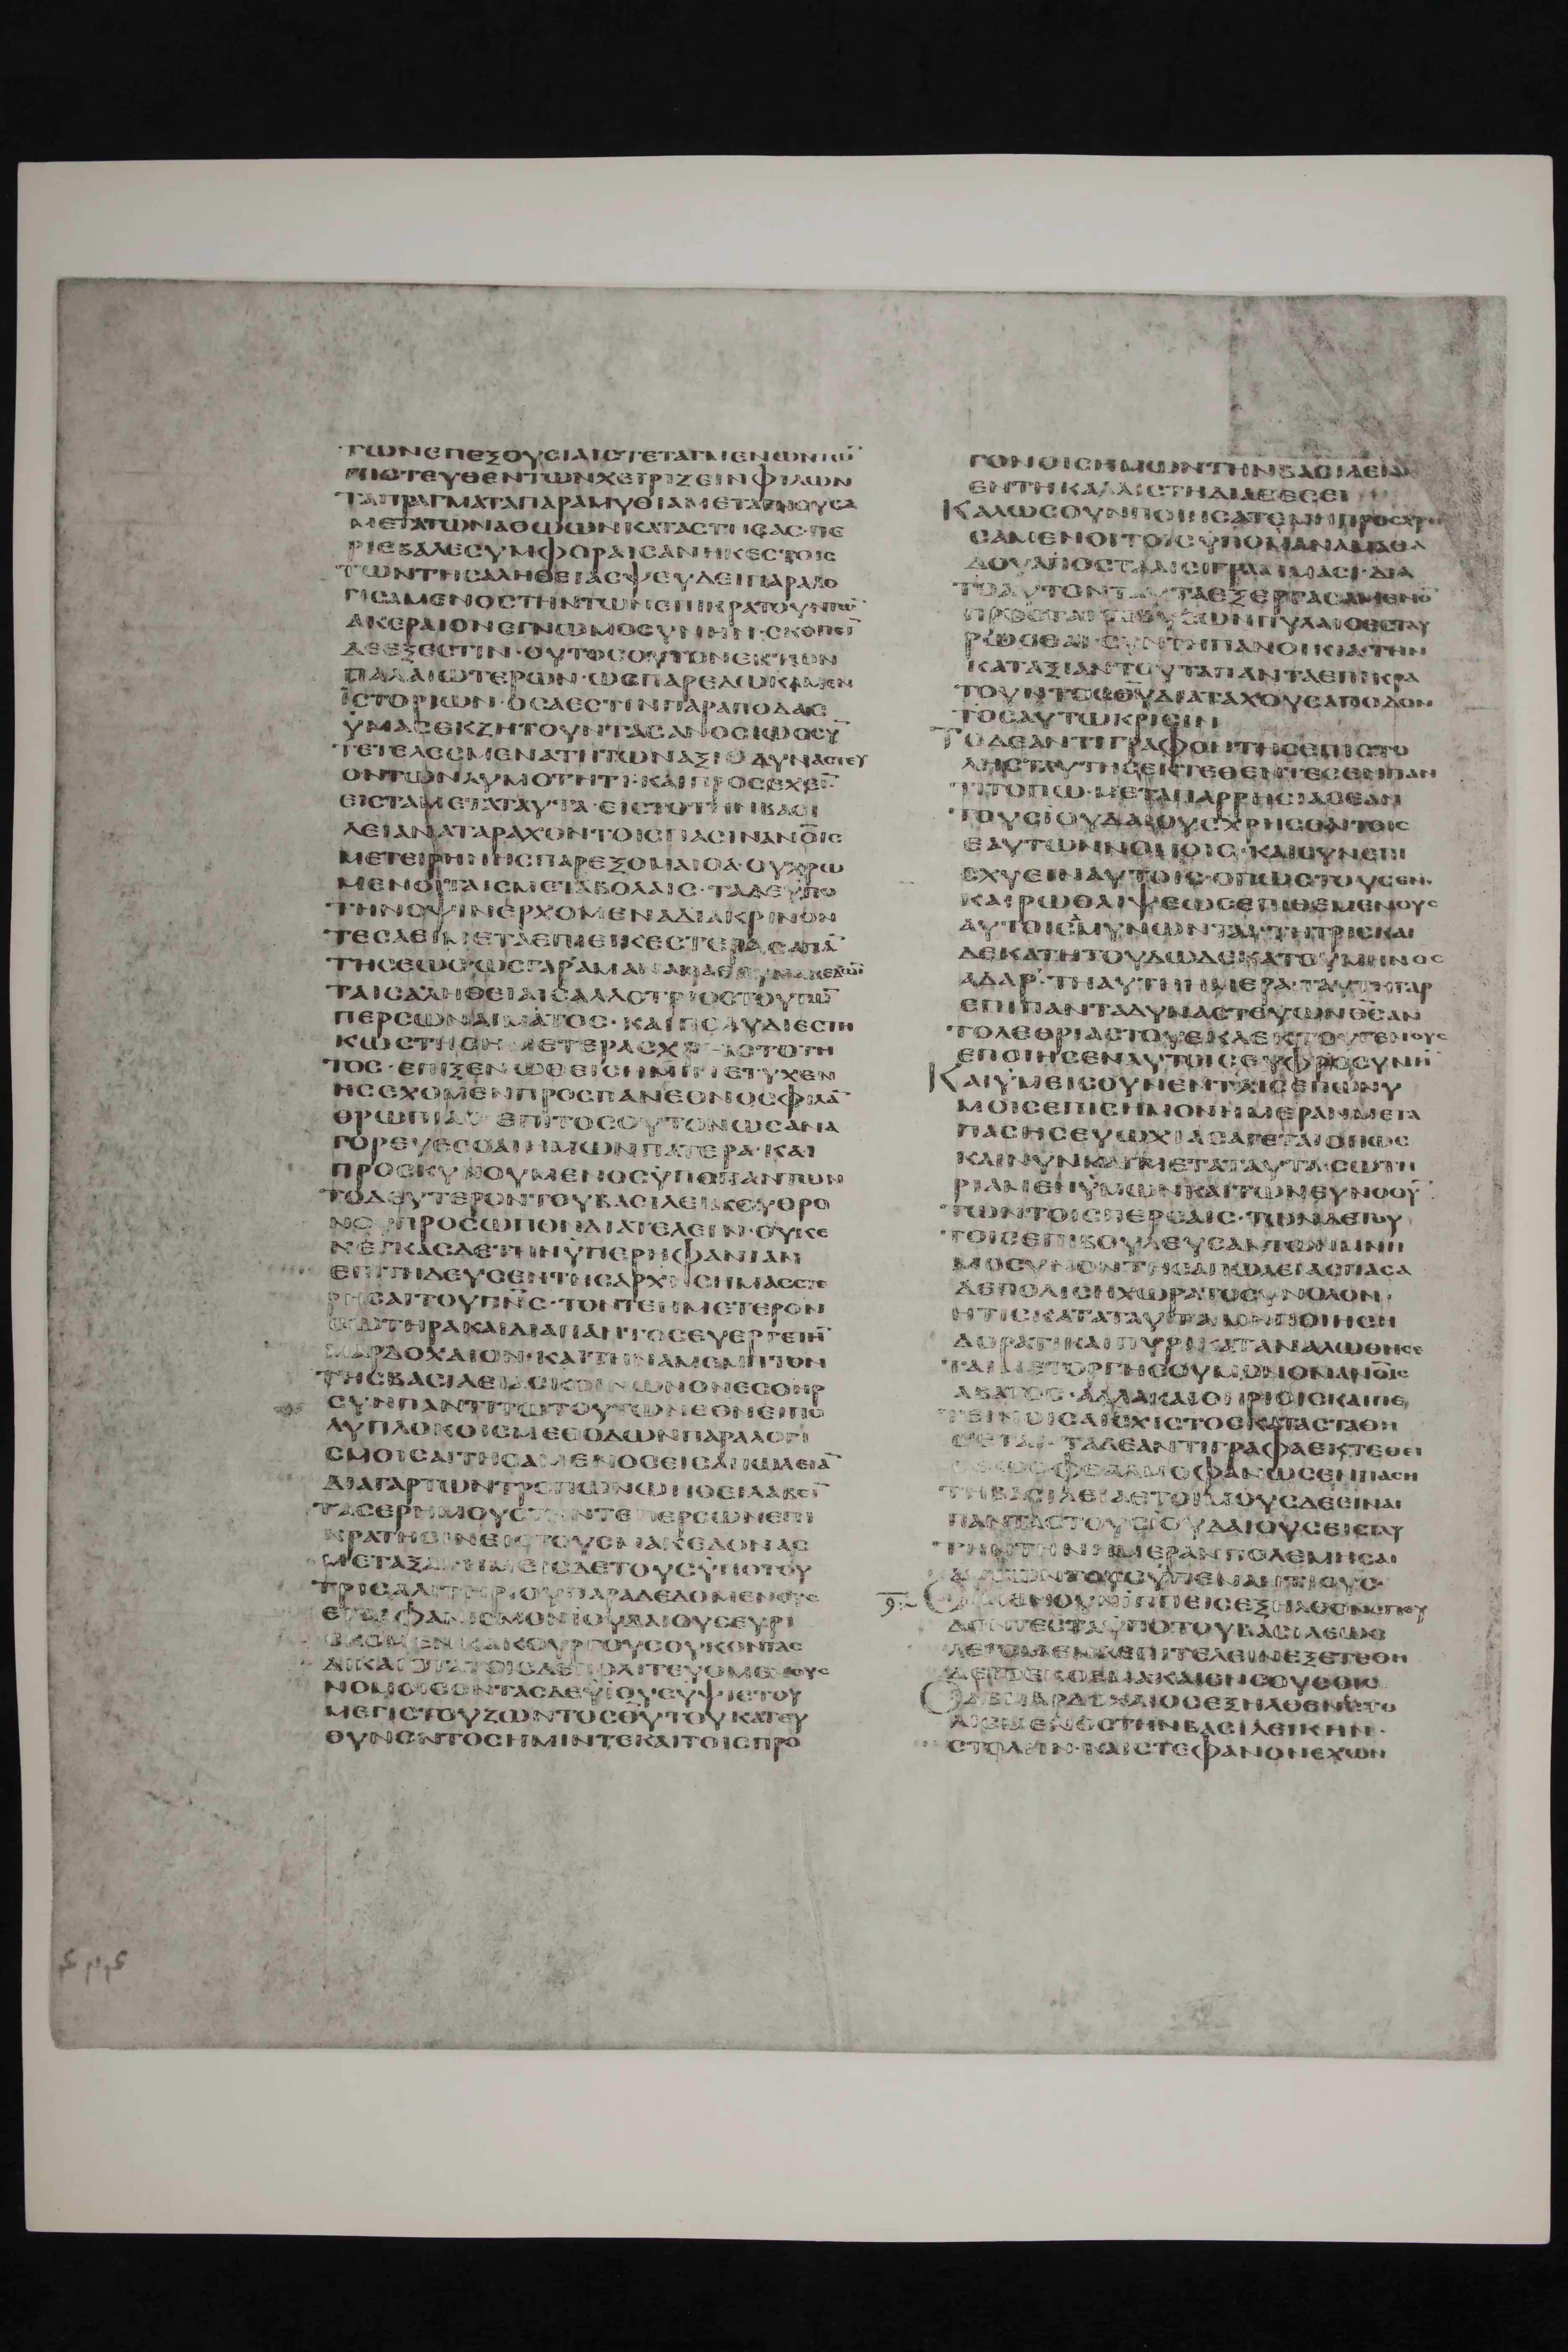 ΤΩΝΕΠΕΞΟΥϹΙΑΙϹΤΕΤΑΓΜΕΝΩΝ
ΠΙϹΤΕΥΘΕΝΤΩΝΧΕΙΡΙΖΕΙΝΦΙΛΩΝ
ΤΑΠΡΑΓΜΑΤΑΠΑΡΑΜΥΘΙΑΜΕΤΑ
ΜΕΤΑΤΩΝΑΘΩΩΝΚΑΤΑΣΤΗϹΑϹ·ΠΕ
ΡΙΕΒΑΛΕϹΥΜΦΟΡΑΙϹΑΝΗΚΕϹΤΟΙϹ
ΤΩΝΤΗϹΑΛΗΘΕΙΑϹΨΕΥΔΕΙΠΑΡΑΛΟ
ΓΙϹΑΜΕΝΟϹΤΗΝΤΩΝΕΠΙΚΡΑΤΟΥΝΤΩ̅
ΑΚΕΡΑΙΟΝΕΓΝΩΜΟϹΥΝΗΝ·ϹΚΟΠΕΙ̅
ΔΕΕΞΕϹΤΙΝ·ΟΥΤΟϹΟΥΤΟΝΕΚΤΩΝ
ΠΑΛΑΙΩΤΕΡΩΝ·ΩϹΠΑΡΕΔΩΚΑΜΕΝ
ΪϹΤΟΡΙΩΝ·ΟϹΑΕϹΤΙΝΠΑΡΑΠΟΔΑϹ
ΫΜΑϹΕΚΖΗΤΟΥΝΤΑϹΑΝΟϹΙΩϹϹΥ̅
ΤΕΤΕΛΕϹΜΕΝΑΤΗΤΩΝΑΞΙΑΔΥΝΑϹΤΕΥ
ΟΝΤΩΝΛΥΜΟΤΗΤΙ·ΚΑΙΠΡΟϹΕΧΕΙ̅
ΕΙϹΤΑΜΕΤΑΤΑΥΤΑ·ΕΙϹΤΟΤΗΝΒΑϹΙ
ΛΕΙΑΝΑΤΑΡΑΧΟΝΤΟΙϹΠΑϹΙΝΑΝΟΙϹ
ΜΕΤΕΙΡΗΝΗϹΠΑΡΕΞΟΜΑΙΘΑ·ΟΥΧΡΩ
ΜΕΝΟΙΤΑΙϹΜΕΤΑΒΟΛΑΙϹ·ΤΑΔΕΫΠΟ
ΤΗΝΟΨΙΝΕΡΧΟΜΕΝΑΔΙΑΚΡΙΝΟΝ
ΤΕϹΑΕΙΜΕΤΑΕΠΙΕΙΚΕϹΤΕΡΑϹΑΠΑ̅
ΤΗϹΕΩϹ·ΩϹΓΑΡΑΜΑΝ
ΤΑΙϹΑΛΗΘΕΙΑΙϹΑΛΛΟΤΡΙΟϹΤΟΥΤΩ̅
ΠΕΡϹΩΝΑΙΜΑΤΟϹ·ΚΑΙΠΟΛΥΔΙΕϹΤΗ
ΚΩϹΤΗϹΗΜΕΤΕΡΑϹΧΡΗϹΤΟΤΗ
ΤΟϹ·ΕΠΙΞΕΝΩΘΕΙϹΗΜΙΝΕΤΥΧΕΝ
ΗϹΕΧΟΜΕΝΠΡΟϹΠΑΝΕΘΝΟϹΦΙΛΑ̅
ΘΡΩΠΙΑϹ ΕΠΙΤΟϹΟΥΤΟΝΩϹΑΝΑ
ΓΟΡΕΥΕϹΘΑΙΗΜΩΝΠΑΤΕΡΑ·ΚΑΙ
ΠΡΟϹΚΥΝΟΥΜΕΝΟϹΫΠΟΠΑΝΤΩΝ
ΤΟΔΕΥΤΕΡΟΝΤΟΥΒΑϹΙΛΕΙΚΟΥΘΡΟ
ΝΟΥΠΡΟϹΩΠΟΝΔΙΑΤΕΛΕΙΝ·ΟΥΚΕ
ΝΕΓΚΑϹΔΕΤΗΝΫΠΕΡΗΦΑΝΙΑΝ
ΕΠΕΤΗΔΕΥϹΕΝΤΗϹΑΡΧΗϹΗΜΑϹϹΤΕ
ΡΗϹΑΙΤΟΥΠΝϹ·ΤΟΝΤΕΗΜΕΤΕΡΟΝ
ϹΩΤΗΡΑΚΑΙΔΙΑΠΑΝΤΟϹΕΥΕΡΓΕΤΗ̅
ΜΑΡΔΟΧΑΙΟΝ·ΚΑΙΤΗΝΑΜΕΜΠΤΟΝ
ΤΗϹΒΑϹΙΛΕΙΑϹΚΟΙΝΩΝΟΝΕϹΘΗΡ
ϹΥΝΠΑΝΤΙΤΩΤΟΥΤΩΝΕΘΝΕΙΠΟ
ΛΥΠΛΟΚΟΙϹΜΕΘΟΔΩΝΠΑΡΑΛΟΓΙ
ϹΜΟΙϹΑΙΤΗϹΑΜΕΝΟϹΕΙϹΑΠΩΛΕΙΑ̅
ΔΙΑΓΑΡΤΩΝΤΡΟΠΩΝΩΗΘΕΙΛΑΒΩ̅
ΤΑϹΕΡΗΜΟΥϹΤΗΝΤΕΠΕΡϹΩΝΕΠΙ
ΚΡΑΤΗϹΙΝΕΙϹΤΟΥϹΜΑΚΕΔΟΝΑϹ
ΜΕΤΑΞΑΙΗΜΕΙϹΔΕΤΟΥϹΫΠΟΤΟΥ
ΤΡΙϹΑΛΙΤΗΡΙΟΥΠΑΡΑΔΕΔΟΜΕΝΟΥϹ
ΕΙϹΑΦΑΝΙϹΜΟΝΙΟΥΔΑΙΟΥϹΕΥΡΙ
ϹΚΟΜΕΝΟΥΚΑΚΟΥΡΓΟΥϹΟΥΚΟΝΤΑϹ
ΔΙΚΑΙΟΤΑΤΟΙϹΔΕΠΟΛΙΤΕΥΟΜΕΝΟΥϹ
ΝΟΜΟΙϹΟΝΤΑϹΔΕΫΙΟΥϹΥΨΙϹΤΟΥ
ΜΕΓΙϹΤΟΥΖΩΝΤΟϹΘΥΤΟΥΚΑΤΕΥ
ΘΥΝΟΝΤΟϹΗΜΙΝΤΕΚΑΙΤΟΙϹΠΡΟ
ΓΟΝΟΙϹΗΜΩΝΤΗΝΒΑϹΙΛΕΙΑΝ
ΕΝΤΗΚΑΛΛΙϹΤΗΔΙΑΘΕϹΕΙ
ΚΑΛΩϹΟΥΝΠΟΙΗϹΑΤΕΜΗΠΡΟϹΧΡΗ
ϹΑΜΕΝΟΙΤΟΙϹΫΠΟΑΜΑΝΑΜΑΔΑ
ΔΟΥΑΠΟϹΤΑΛΙϹΙΓΡΑΜΜΑϹΙ·ΔΙΑ
ΤΟΑΥΤΟΝΤΑΥΤΑΕΞΕΡΓΑϹΑΜΕΝΟ̅
ΠΡΟϹΤΑΙϹϹΟΥϹΩΝΠΥΛΑΙϹΕϹΤΑΥ
ΡΩϹΘΑΙ·ϹΥΝΤΗΠΑΝΟΙΚΙΑ·ΤΗΝ
ΚΑΤΑΞΙΑΝΤΟΥΤΑΠΑΝΤΑΕΠΙΚΡΑ
ΤΟΥΝΤΟϹΘΥΔΙΑΤΑΧΟΥϹΑΠΟΔΟΝ
ΤΟϹΑΥΤΩΚΡΙϹΙΝ
ΤΟΔΕΑΝΤΙΓΡΑΦΟΝΤΗϹΕΠΙϹΤΟ
ΛΗϹΤΑΥΤΗϹΕΚΤΕΘΕΝΤΕϹΕΝΠΑΝ
ΤΙΤΟΠΩ·ΜΕΤΑΠΑΡΡΗϹΙΑϹΕΑΝ
ΤΟΥϹΪΟΥΔΑΙΟΥϹΧΡΗϹΘΑΙΤΟΙϹ
ΕΑΥΤΩΝΝΟΜΟΙϹ·ΚΑΙϹΥΝΕΠΙ
ΕΧΥΕΙΝΑΥΤΟΙϹ·ΟΠΩϹΤΟΥϹΕΝ
ΚΑΙΡΩΘΛΙΨΕΩϹΕΠΙΘΕΜΕΝΟΥϹ
ΑΥΤΟΙϹΑΜΥΝΩΝΤΑΙ·ΤΗΤΡΙϹΚΑΙ
ΔΕΚΑΤΗΤΟΥΔΩΔΕΚΑΤΟΥΜΗΝΟϹ
ΑΔΑΡ·ΤΗΑΥΤΗΗΜΕΡΑ·ΤΑΥΤΗΝΓΑΡ
ΕΠΙΠΑΝΤΑΔΥΝΑϹΤΕΥΩΝΘϹΑΝ
ΤΟΛΕΘΡΙΑϹΤΟΥΕΚΛΕΚΤΟΥΓΕΝΟΥϹ
ΕΠΟΙΗϹΕΝΑΥΤΟΙϹΕΥΦΡΟϹΥΝΗ̅
ΚΑΙΫΜΕΙϹΟΥΝΕΝΤΑΙϹΕΠΩΝΥ
ΜΟΙϹΕΠΙϹΗΜΟΝΗΜΕΡΑΝΜΕΤΑ
ΠΑϹΗϹΕΥΩΧΙΑϹΑΓΕΤΑΙΟΠΩϹ
ΚΑΙΝΥΝΚΑΙΜΕΤΑΤΑΥΤΑ·ϹΩΤΗ
ΡΙΑΜΕΝΫΜΩΝΚΑΙΤΩΝΕΥΝΟΟΥ̅
ΤΩΝΤΟΙϹΠΕΡϹΑΙϹ·ΤΩΝΔΕΤΟΥ
ΤΟΙϹΕΠΙΒΟΥΛΕΥϹΑΝΤΩΝΜΝΗ
ΜΟϹΥΝΟΝΤΗϹΑΠΩΛΕΙΑϹΠΑϹΑ
ΔΕΠΟΛΙϹΗΧΩΡΑΤΟϹΥΝΟΛΟΝ
ΗΤΙϹΚΑΤΑΤΑΥΤΑΜΗΠΟΙΗϹΗ
ΔΟΡΑΤΙΚΑΙΠΥΡΙΚΑΤΑΝΑΛΩΘΗϹΕ
ΤΑΙΜΕΤΟΡΓΗϹΟΥΜΟΝΟΝΑΝΟΙϹ
ΑΒΑΤΟϹ·ΑΛΛΑΚΑΙΘΗΡΙΟΙϹΚΑΙΠΕ
ΤΕΙΝΟΙϹΑΙϹΧΙϹΤΟϹΚΑΤΑϹΤΑΘΗ
ϹΕΤΑΙ·ΤΑΔΕΑΝΤΙΓΡΑΦΑΕΚΤΕΘΕΙ
ϹΘΩϹΟΦΘΑΛΜΟΦΑΝΩϹΕΝΠΑϹΗ
ΤΗΒΑϹΙΛΕΙΑΕΤΟΙΜΟΥϹΔΕΕΙΝΑΙ
ΠΑΝΤΑϹΤΟΥϹΪΟΥΔΑΙΟΥϹΕΙϹΤΑΥ
ΤΗΝΤΗΝΗΜΕΡΑΝΠΟΛΕΜΗϹΑΙ
ΑΥΤΩΝΤΟΥϹΫΠΕΝΑΝΤΙΟΥϹ·
ΟΙΜΕΝΟΥΝΪΠΠΕΙϹΕΞΗΛΘΟΝϹΠΕΥ
ΔΟΝΤΕϹΤΑΫΠΟΤΟΥΒΑϹΙΛΕΩϹ
ΛΕΓΟΜΕΝΑΕΠΙΤΕΛΕΙΝΕΞΕΤΕΘΗ
ΔΕ
Ο ΔΕΜΑΡΔΟΧΑΙΟϹΕΞΗΛΘΕΝΕϹΤΟ
ΛΙϹΜΕΝΟϹΤΗΝΒΑϹΙΛΕΙΚΗΝ·
ϹΤΟΛΗΝ·ΚΑΙϹΤΕΦΑΝΟΝΕΧΩΝ